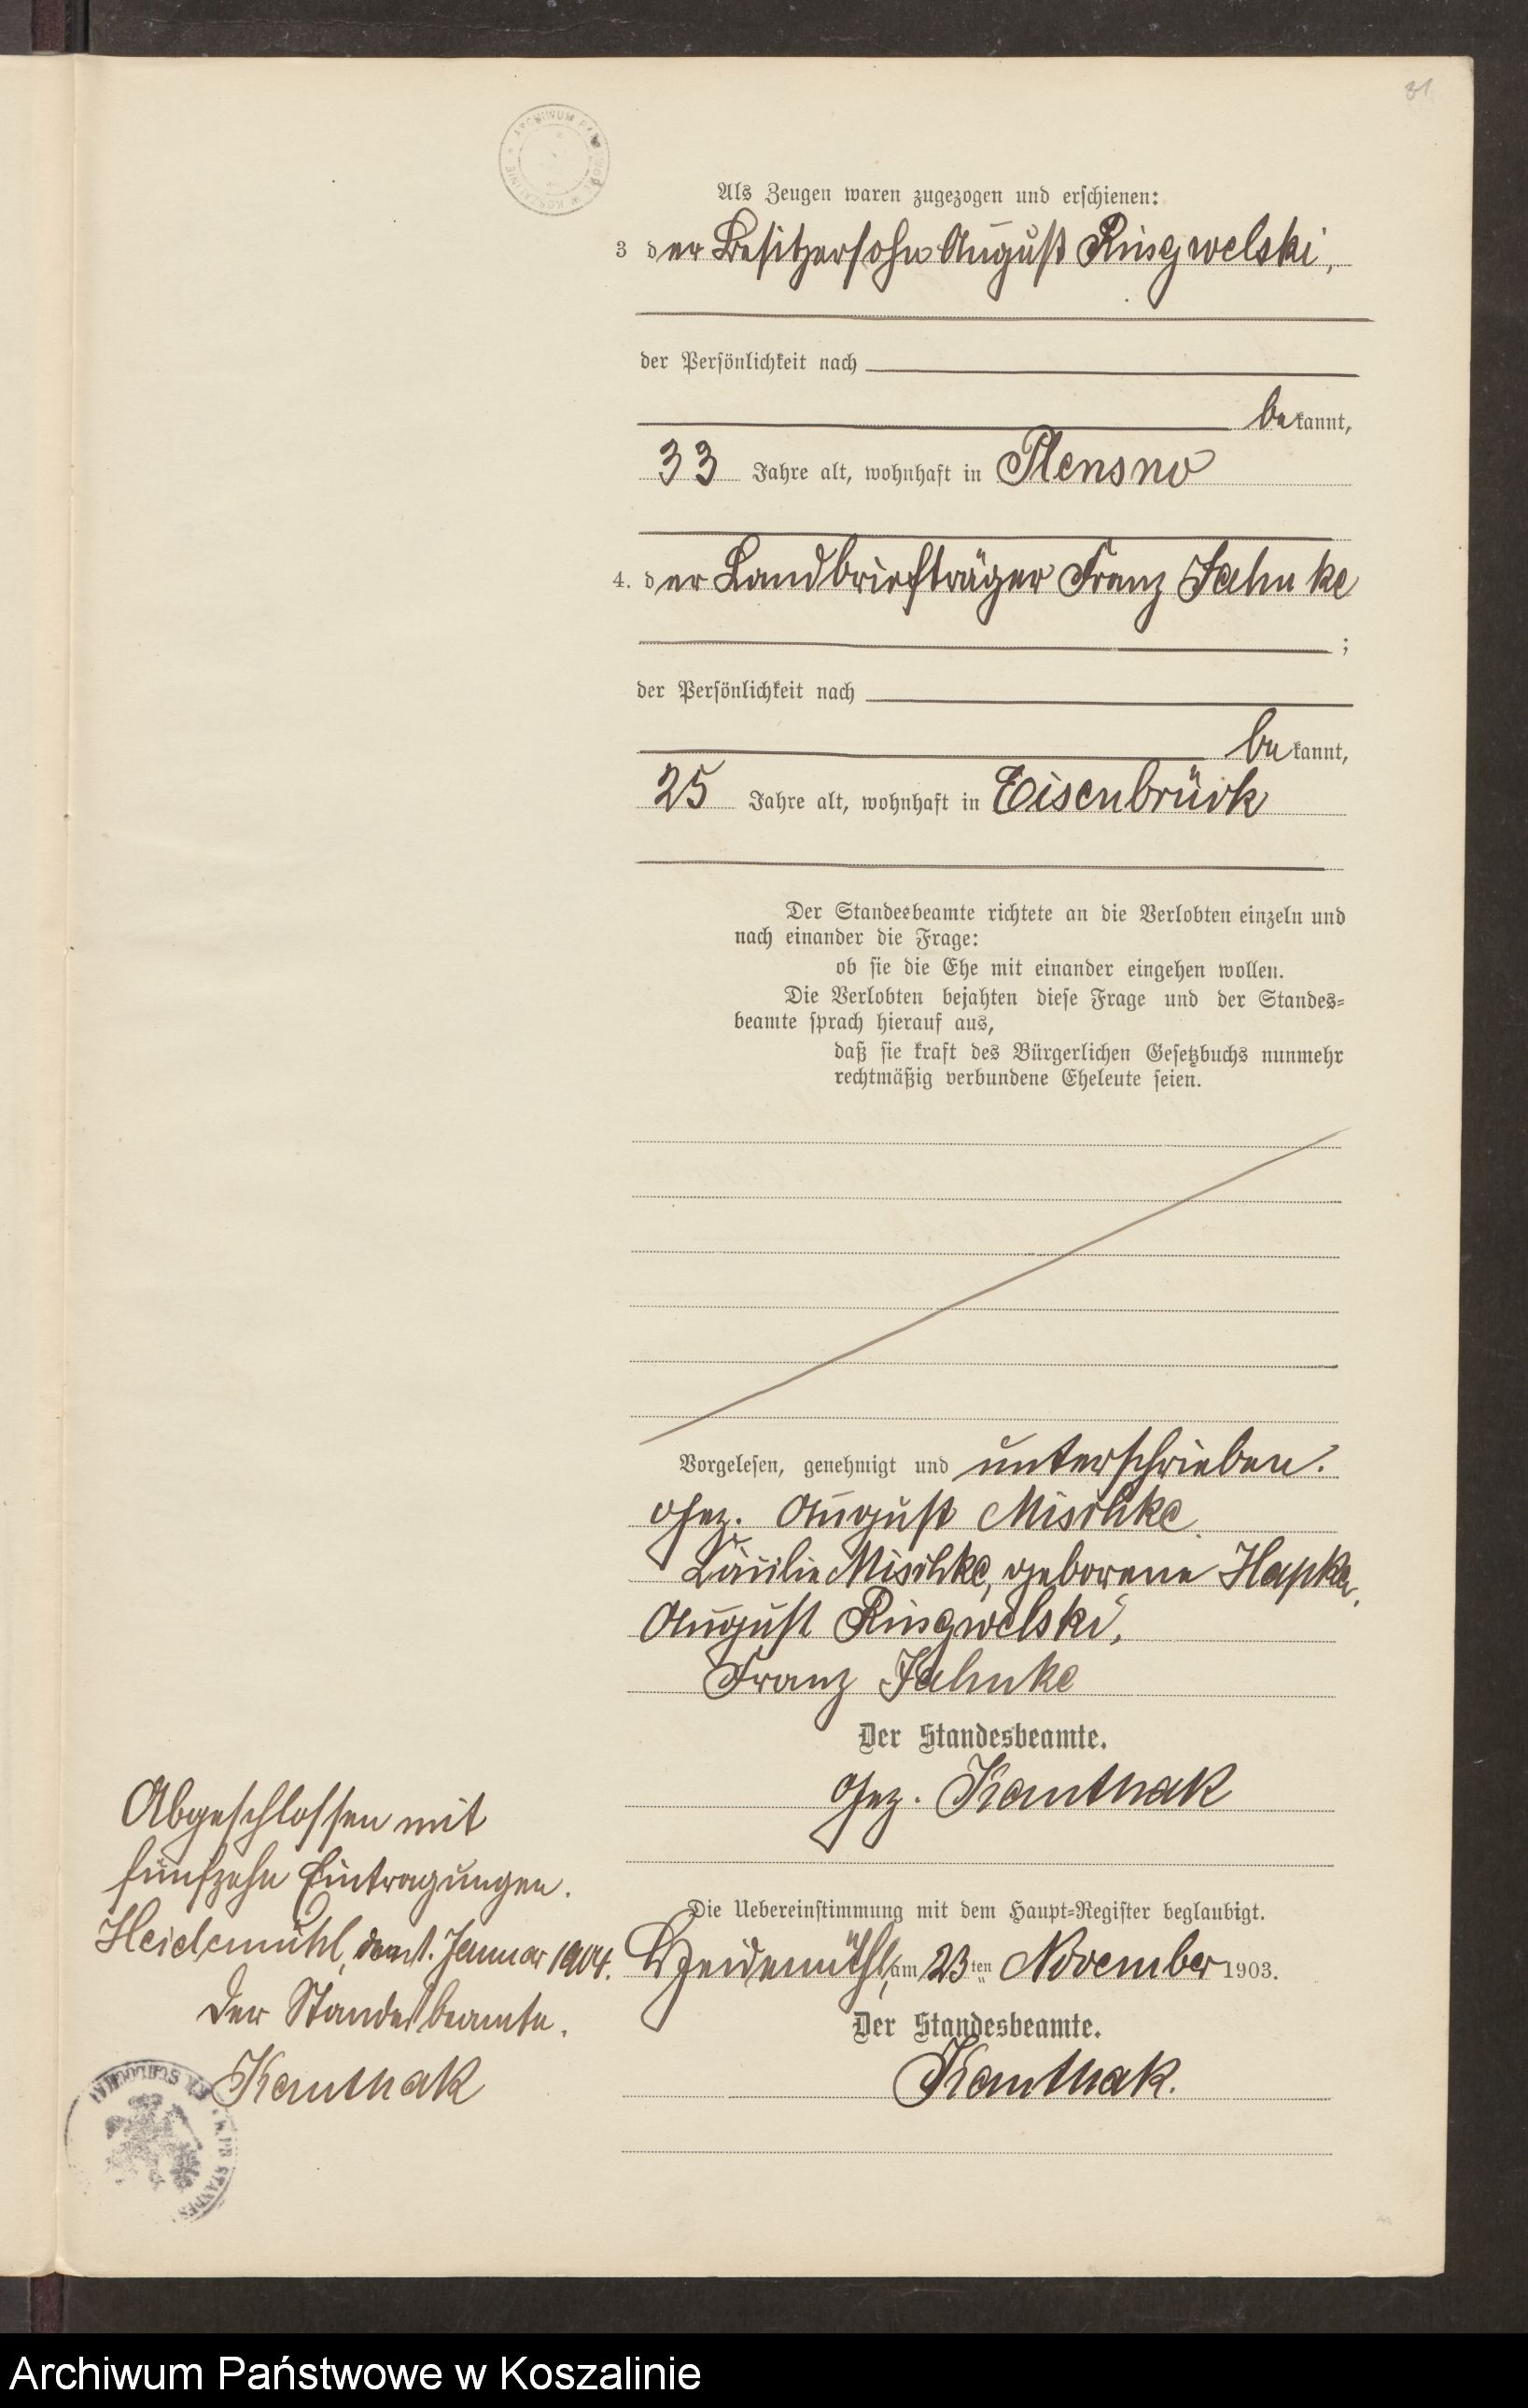 31
ARCHIWUM PAŃSTWOWE W KOSZALINIE
Als Zeugen waren zugezogen und erschienen:
3 der Besitzersohn August Ringwelski,
der Persönlichkeit nach
bekannt,
33 Jahre alt, wohnhaft in Plensno
4. der Landbriefträger Franz Jahnke
;
der Persönlichkeit nach
bekannt,
25 Jahre alt, wohnhaft in Eisenbrück
Der Standesbeamte richtete an die Verlobten einzeln und
nach einander die Frage:
ob sie die Ehe mit einander eingehen wollen.
Die Verlobten bejahten diese Frage und der Standes=
beamte sprach hierauf aus,
daß sie kraft des Bürgerlichen Gesetzbuchs nunmehr
rechtmäßig verbundene Eheleute seien.
Vorgelesen, genehmigt und unterschrieben.
gez. August Mischke
Mischke, geborene Hapka,
August Ringwelski,
Franz Jahnke
Der Standesbeamte.
gez. Kanthak
Die Uebereinstimmung mit dem Haupt=Register beglaubigt.
Heidemühl, am 23ten November 1903.
Der Standesbeamte.
Kanthak.
Abgeschlossen mit
fünfzehn Eintragungen.
Heidemühl, den 1. Januar 1904.
Der Standesbeamte.
Kanthak
Archiwum Państwowe w Koszalinie